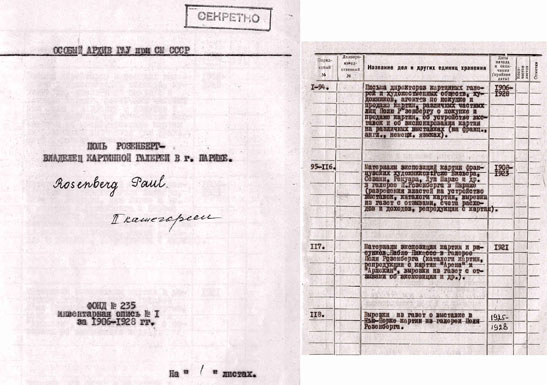 СЕКРЕТНО
ОСОБЫЙ АРХИВ ГАУ при СМ СССР
ПОЛЬ РОЗЕНБЕРГ-
ВЛАДЕЛЕЦ КАРТИННОЙ ГАЛЕРЕИ В г. ПАРИЖЕ.
Rosenberg Paul.
II категории
ФОНД № 235
инвентарная опись № I
за 1906-1928 гг.
На " 1 " листах.
№
№
Название дел и других единиц хранения
I-94.
Письма директоров картинных гале-
рей и художественных обществ, ху-
дожников, агентов по покупке и
продаже картин, различных частных
лиц Полю Розенбергу о покупке и
продаже картин, об устройстве выс-
тавок и об экспонировании картин
на различных выставках (на франц.,
англ., немецк. языках).
1906-
1928
95-116.
Материалы экспозиций картин фран-
цузских художников:
Сезанна, Ренуара, и др.
в галерее П.Розенберга в Париже
(разрешения властей на устройство
выставок, каталоги картин, вырезки
из газет с отзывами, счета расхо-
дов и доходов, репродукции с картин).
117.
Материалы экспозиции картин и ри-
сунков Пабло Пикассо в галерее
Поля Розенберга (каталоги картин,
репродукции с картин "Арена" и
"Арлекин", вырезки из газет с от-
зывами об экспозиции и др.).
1921
118.
Вырезки из газет о выставке в
Нью-Йорке картин из галереи Поля
Розенберга.
1925-
1928